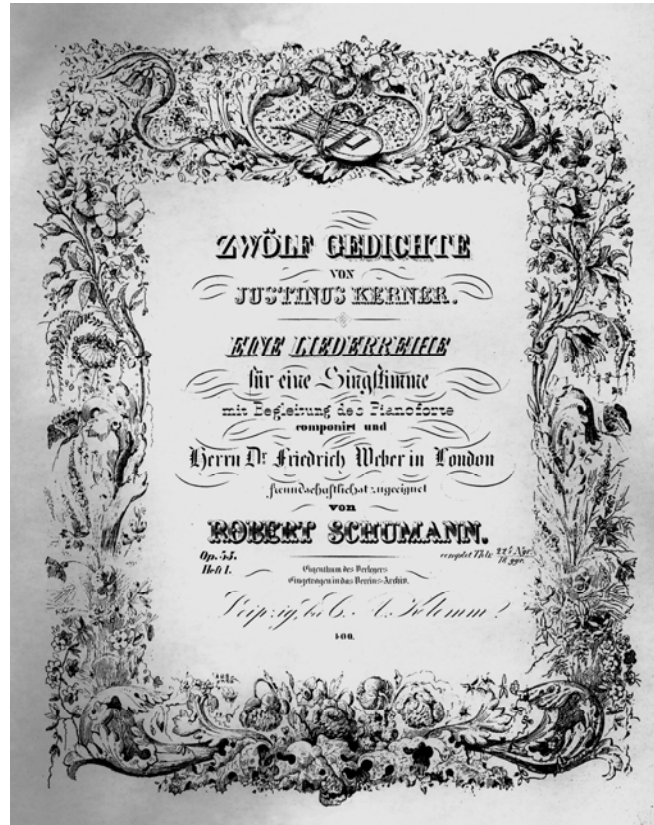 ZWÖLF GEDICHTE
VON
JUSTINUS KERNER.
EINE LIEDERREIHE
für eine Singstimme
mit Begleitung des Pianoforte
componirt und
Herrn Dr. Friedrich Weber in London
freundschaftlichst zugeeignet
von
ROBERT SCHUMANN.
Op. 35.
Heft 1.
complet Thlr.
Eigenthum des Verlegers
Eingetragen in das Vereins-Archiv.
Leipzig, bei C. A. Klemm.